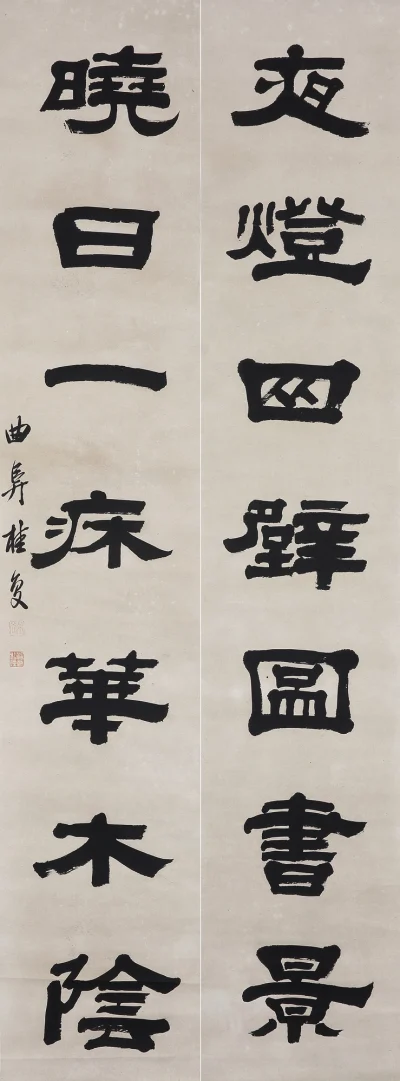 夜燈四壁圖書景
曉日一床華木陰
曲阜桂复